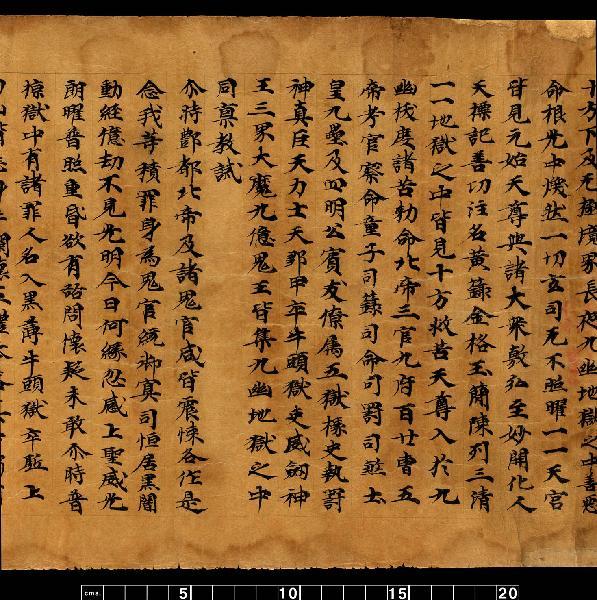 十方下及无極境界長夜九幽地獄之中善惡
命根光中煥然一切玄司无不照曜一一天宮
皆見元始天尊與諸大衆敷弘至妙開化人
天標記善功注名黃籙金格玉簡陳列三清
一一地獄之中皆見十方救苦天尊入於九
幽拔度諸苦勑命北帝三官九府百廿曹五
帝考官察命童子司錄司命司罰司
皇九壘及四明公賓友僚屬五獄掾吏執罸
神真巨天力士天郵甲卒牛頭獄吏威劒神
王三界大魔九億鬼王皆集九幽地獄之中
同稟教試
尒時酆都北帝及諸鬼官咸皆震悚各作是
念我等積罪身爲鬼官統御冥司恒居黑闇
動經億劫不見光明今日何緣忽感上聖威光
朗曜普照重昏欲有諮問懷疑未敢尒時普
掠獄中有諸罪人名入黑薄牛頭獄卒駈上